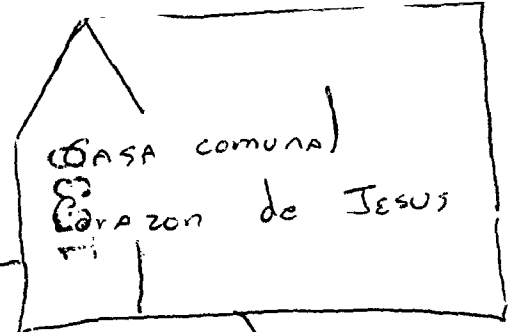 CASA comunal
Corazon de Jesus